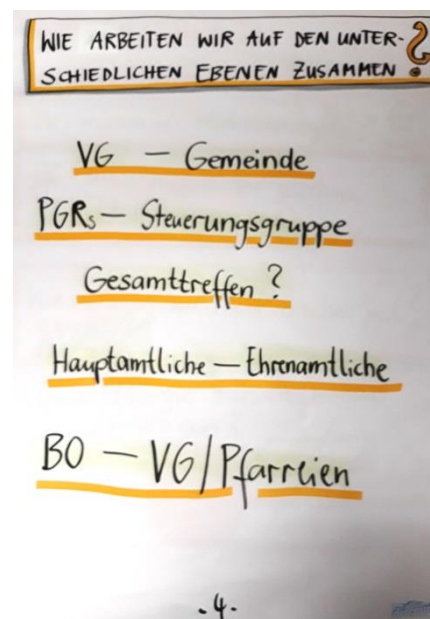 WIE ARBEITEN WIR AUF DEN UNTER-
SCHIEDLICHEN EBENEN ZUSAMMEN?
VG – Gemeinde
PGRs – Steuerungsgruppe
Gesamttreffen?
Hauptamtliche – Ehrenamtliche
BO – VG/Pfarreien
.4.